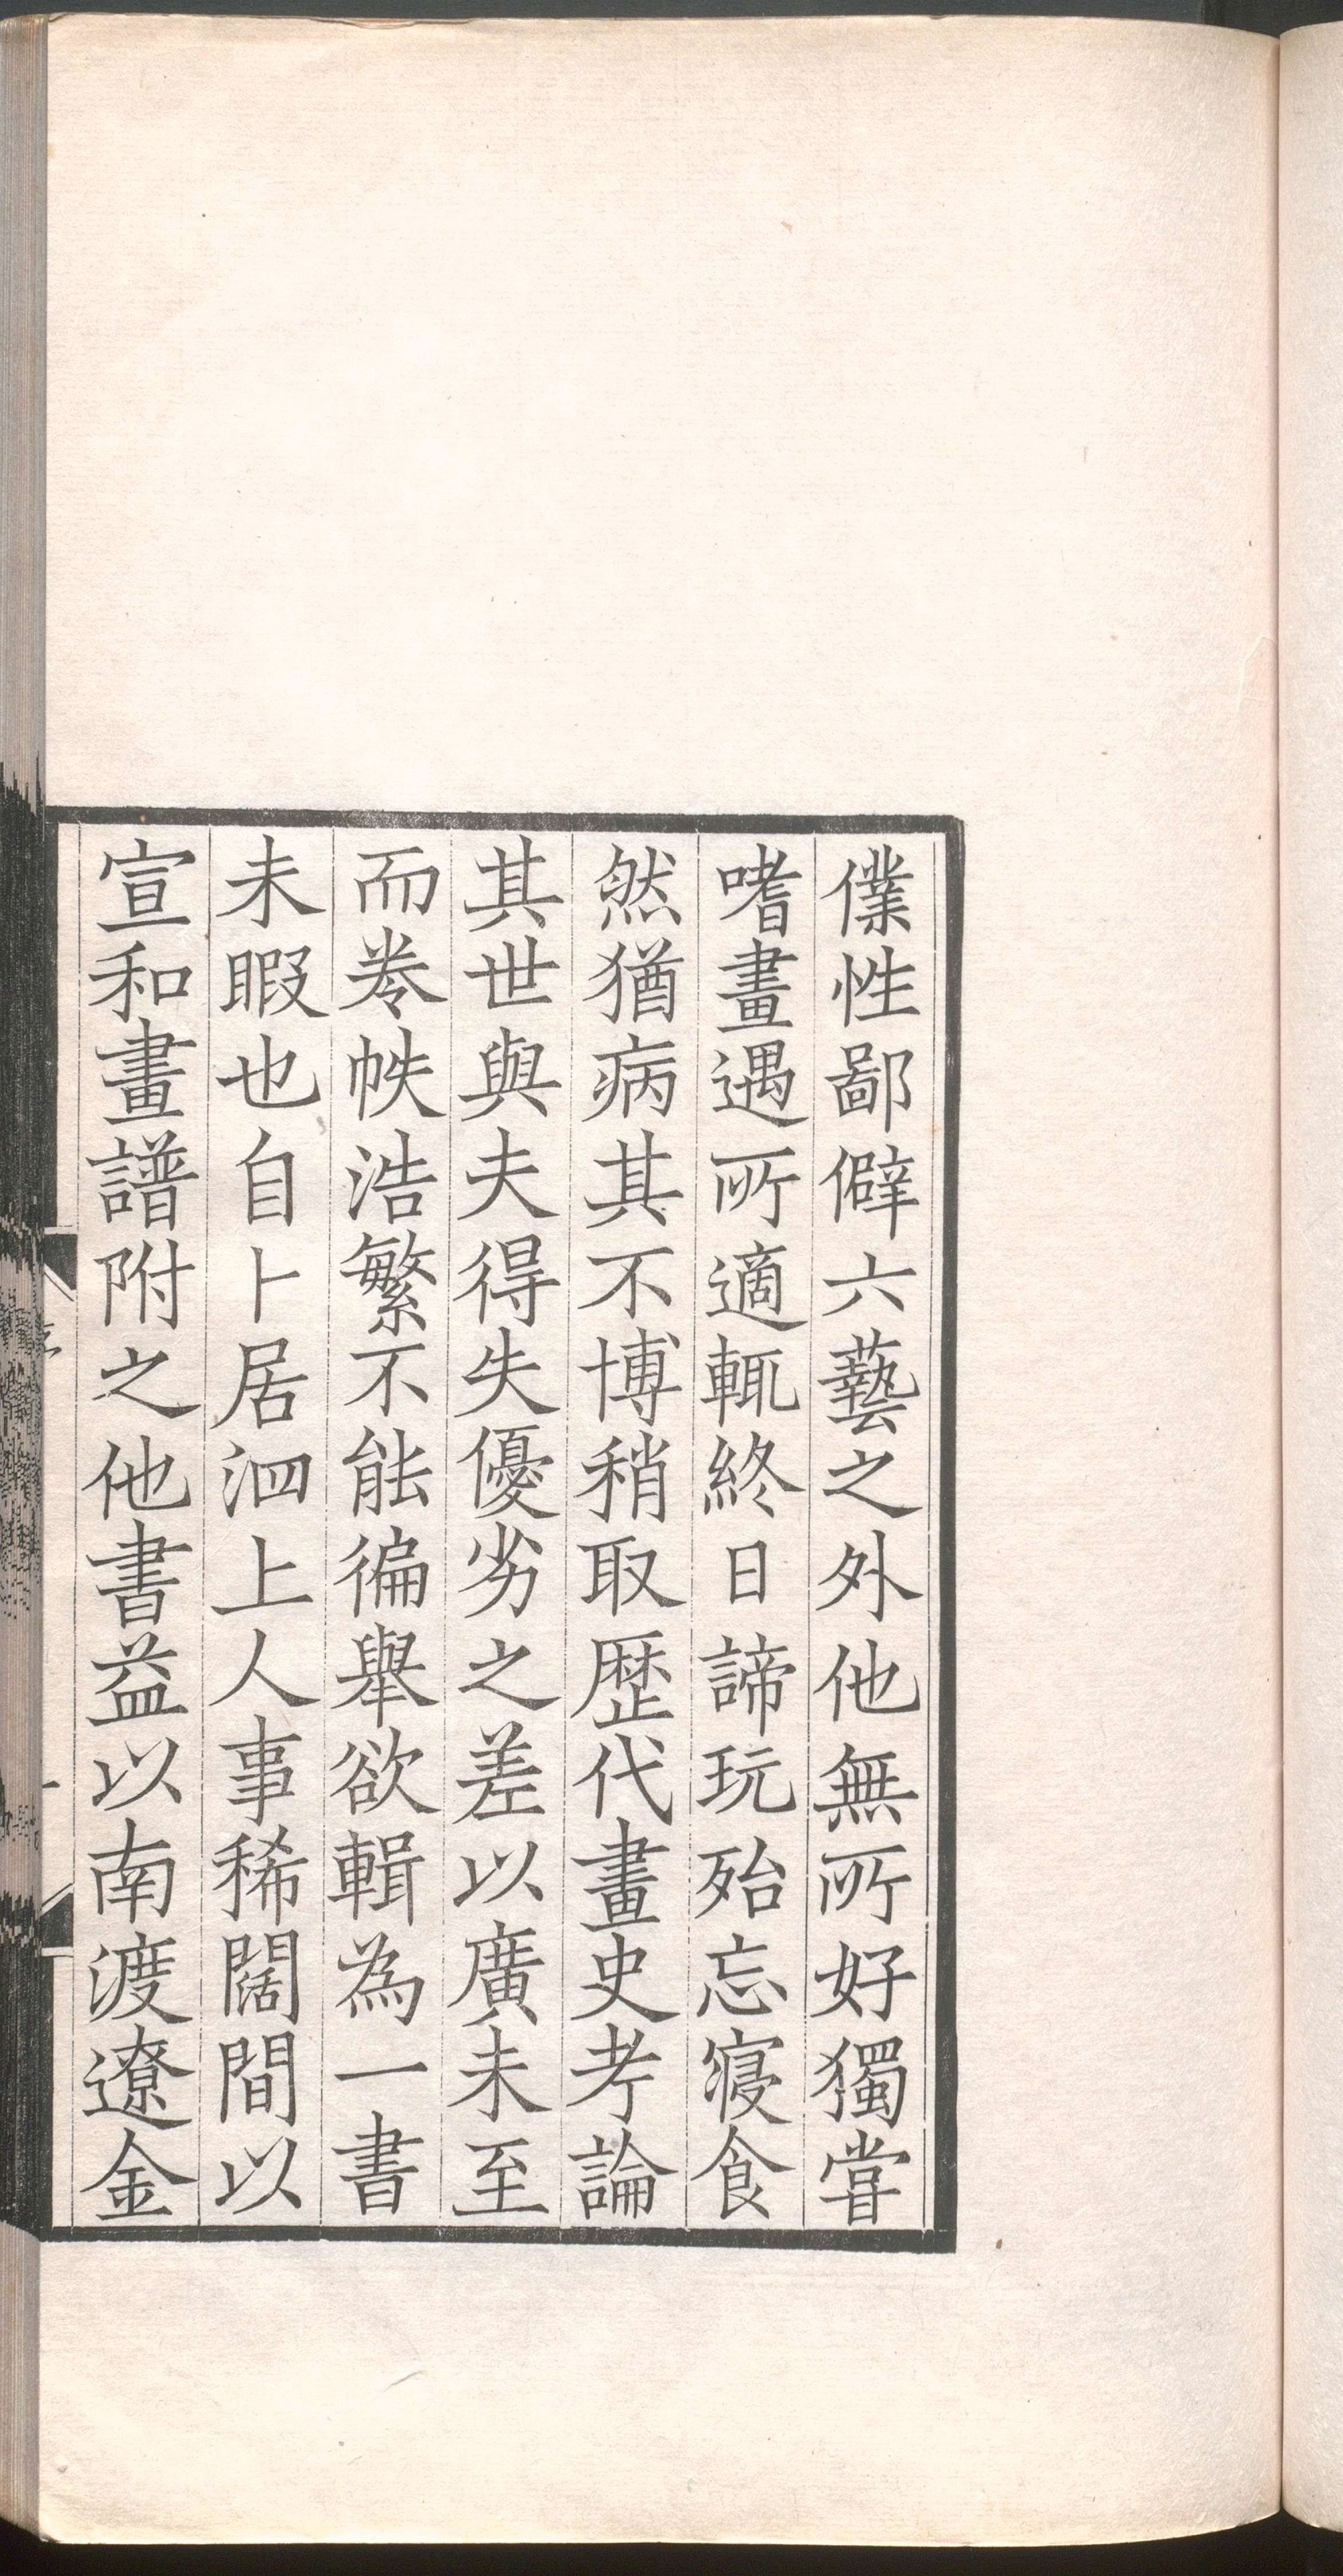 僕性鄙僻六藝之外他無所好獨嘗
嗜畫遇所適輒終日諦玩殆忘寢食
然猶病其不博稍取歴代畫史考論
其世與夫得失優劣之差以廣未至
而卷帙浩繁不能徧舉欲輯為一書
未暇也自卜居泗上人事稀闊間以
宣和畫譜附之他書益以南渡遼金